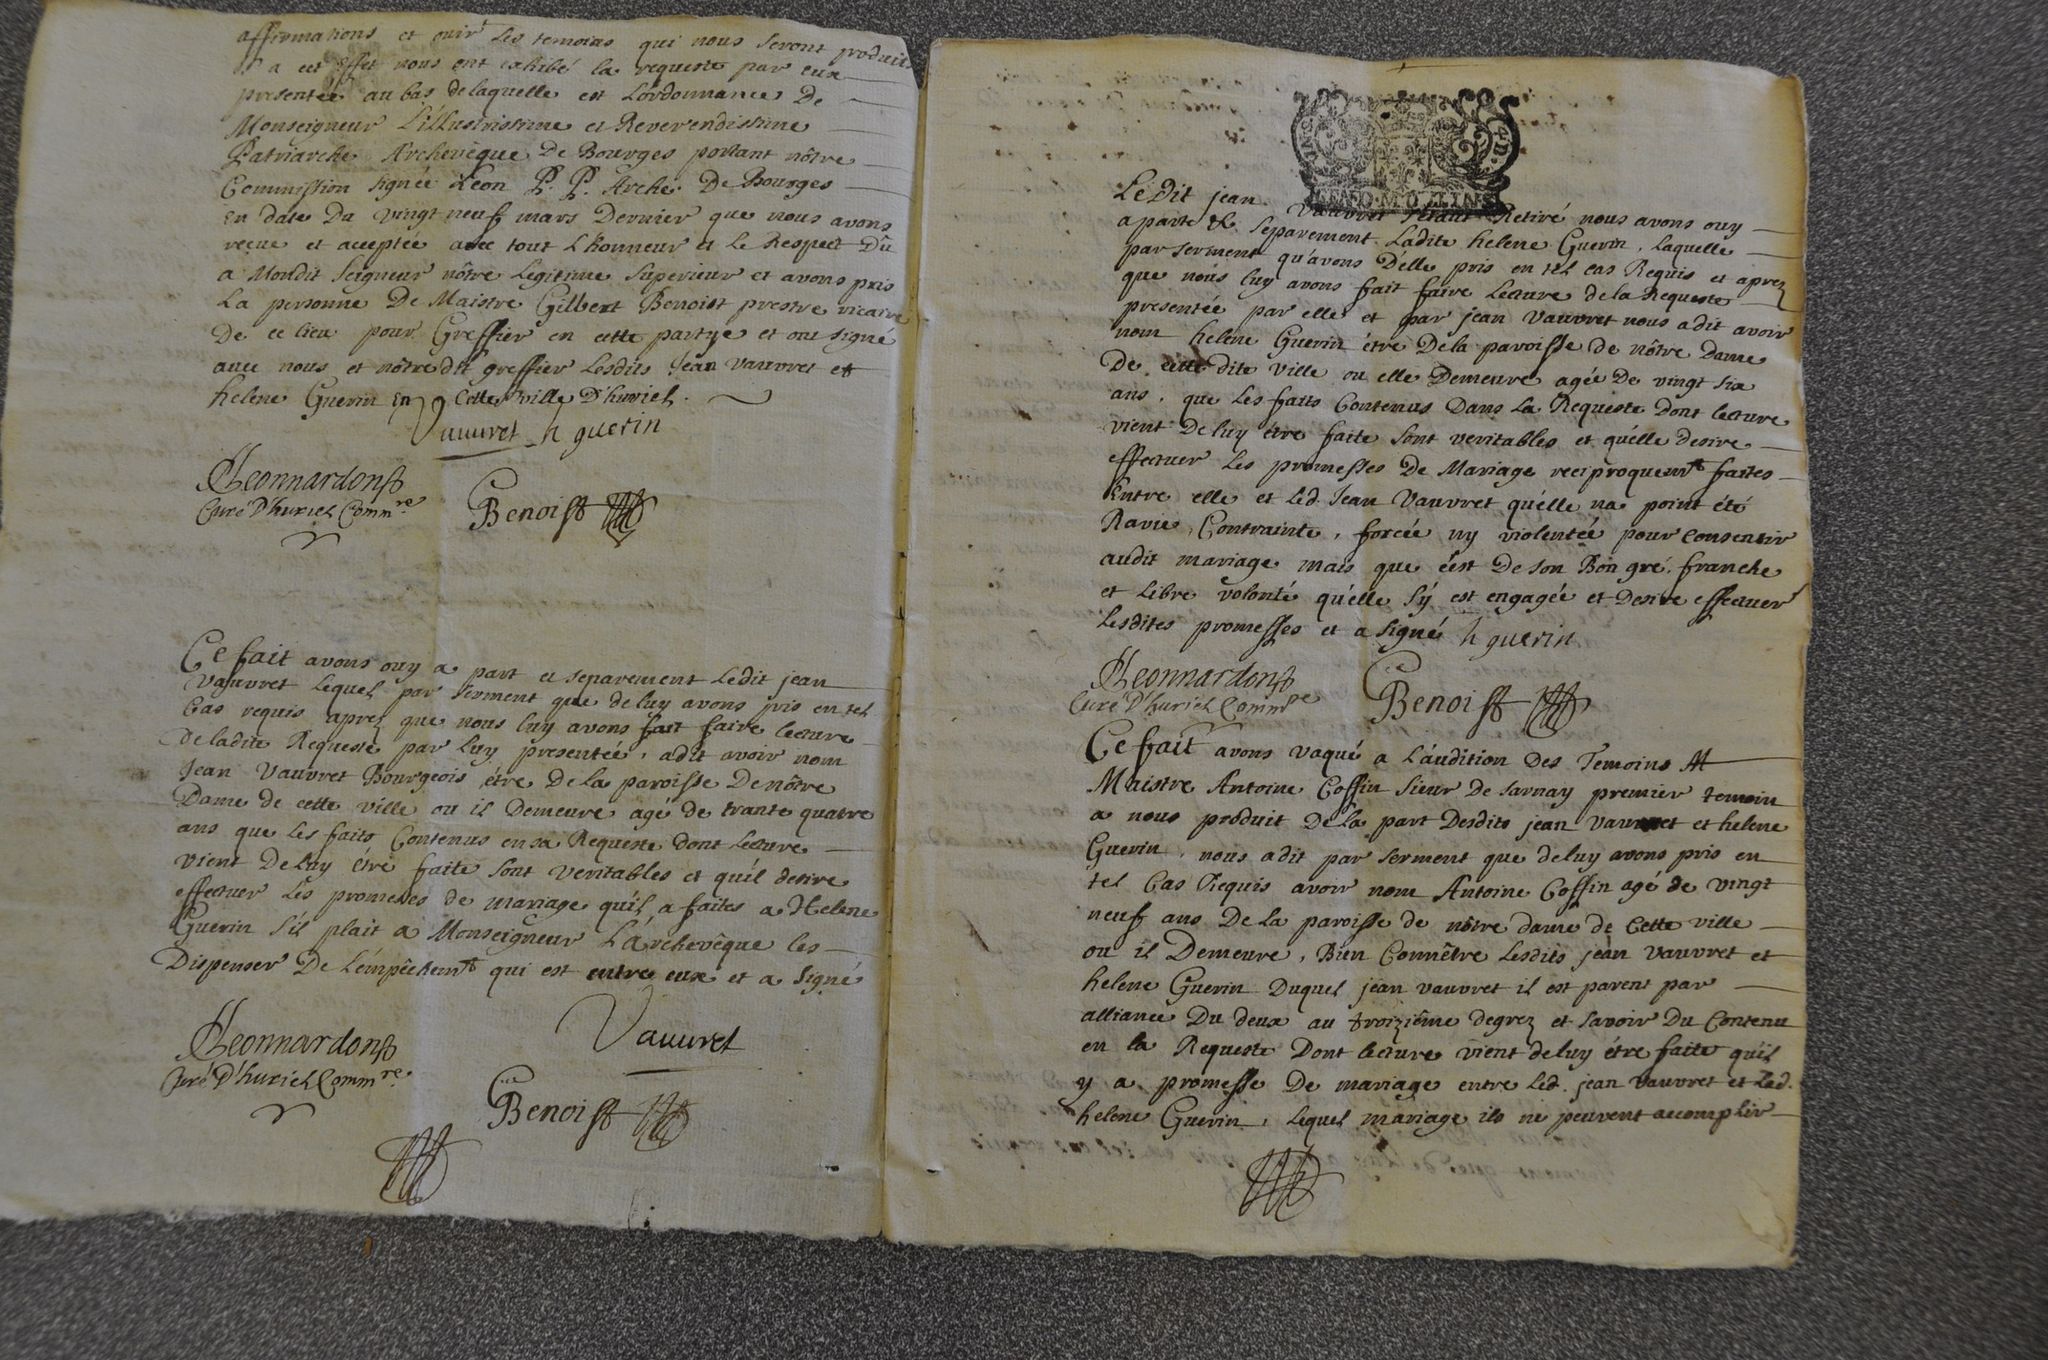 affirmations et ouir les temoins qui nous seront produits
a cet effet nous ont exhibé la requeste par eux
presentée au bas de laquelle est Lordonnance De
Monseigneur L'illustrissime et Reverendissime
Patriarche Archevêque De Bourges portant nôtre
Commission signée Leon P. P. Arche. De Bourges
en date Du vingt neuf mars Dernier que nous avons
reçue et acceptée avec tout L'honneur et Le Respect Dû
a Mondit Seigneur nôtre Legitime Superieur et avons pris
La personne De Maistre Gilbert Benoist prestre vicaire
De ce lieu pour Greffier en cette partye et ont signé
avec nous et nôtre dit greffier Lesdits Jean Vauvret et
helene Guerin En Cette ville D'huriel.
Vauvret h guerin
Leonnardon
Curé D'huriel Commre
Benoist
Ce fait avons ouy a part et separement Ledit jean
Vauvret Lequel par serment que de luy avons pris en tel
Cas requis aprez que nous luy avons fait faire lecture
De ladite Requeste par Luy presentée, a dit avoir nom
Jean Vauvret Bourgeois être De la paroisse De nôtre
Dame de cette ville ou il Demeure agé de trante quatre
ans que Les faits Contenus en sa Requeste dont Lecture
vient De luy être faite sont veritables et qu'il desire
effectuer Les promesses de mariage qu'il a faites a Helene
Guerin s'il plait a Monseigneur L'Archevêque les
Dispenser De L'empêchemt qui est entre eux et a signé
Leonnardon
Curé D'huriel Commre
Vauvret
Benoist
GEN D MOULINS
Le dit jean Vauvret s'étant Retiré nous avons ouy
a part et separement Ladite helene Guerin, laquelle
par serment qu'avons D'elle pris en tel cas Requis et aprez
que nous luy avons fait faire Lecture de la Requeste
presentée par elle et par jean Vauvret nous a dit avoir
nom helene Guerin être De la paroisse de nôtre Dame
De cette dite ville ou elle Demeure agée De vingt six
ans, que Les faits Contenus Dans La Requeste dont lecture
vient De luy être faite sont veritables et qu'elle desire
effectuer Les promesses De Mariage reciproquemt faites
Entre elle et Led. Jean Vauvret qu'elle na point été
Ravie, Contrainte, forcée ny violentée pour consentir
audit mariage mais que c'est De son Bon gré, franche
et Libre volonté qu'elle s'y est engagée et Desire effectuer
Lesdites promesses et a signé h guerin
Leonnardon
Curé D'huriel Commre
Benoist
Ce fait avons vaqué a L'audition Des Temoins
Maistre Antoine Coffin Sieur De Sarnay premier temoin
a nous produit De la part Desdits jean Vauvret et helene
Guerin, nous a dit par serment que de luy avons pris en
tel Cas Requis avoir nom Antoine Coffin agé de vingt
neuf ans De La paroisse de nôtre dame de Cette ville
ou il Demeure, Bien Connêtre Lesdits jean Vauvret et
helene Guerin Duquel jean vauvret il est parent par
alliance Du deux au troizième degrez et savoir Du Contenu
en la Requeste Dont lecture vient de luy être faite qu'il
y a promesse De mariage entre Led. jean vauvret et Lad.
helene Guerin, Lequel mariage ils ne peuvent accomplir